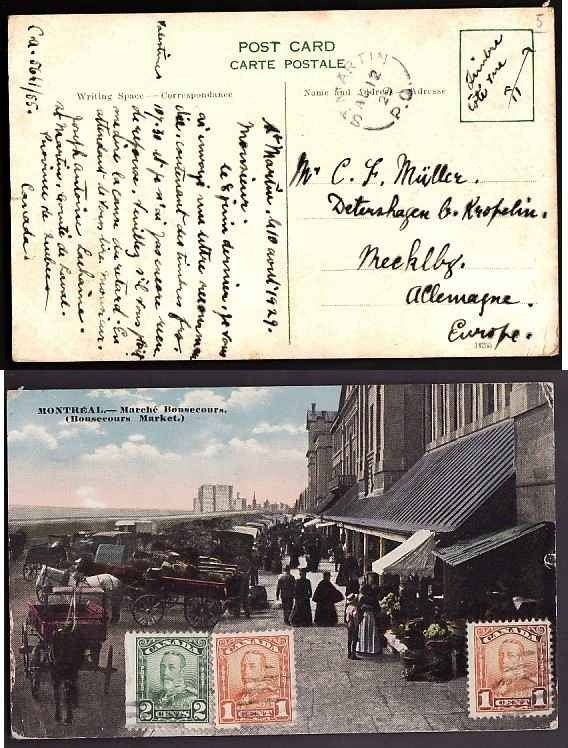 5
POST CARD
CARTE POSTALE
Writing Space — Correspondance
Name and Address — Adresse
ST MARTIN
AU 12
29
P.Q.
Timbre
côté vue
St Martin, le 10 août 1929.
Monsieur.
Le 8 juin dernier, je vous
ai envoyé une lettre recomman
dée contenant des timbres frs.
19.30 et je n'ai pas encore rien
de réponse, veuillez s'il vous plait
me dire la cause du retard. En
attendant de vous lire monsieur.
Joseph Antoine
St Martin, Comté de Laval.
Province de Quebec
Canada.
Mr C. F. Müller.
Detershagen b. Kröpelin.
Mecklbg.
Allemagne.
Europe.
MONTRÉAL.— Marché Bonsecours.
(Bonsecours Market.)
CANADA
2 CENTS 2
CANADA
1 CENT 1
CANADA
1 CENT 1